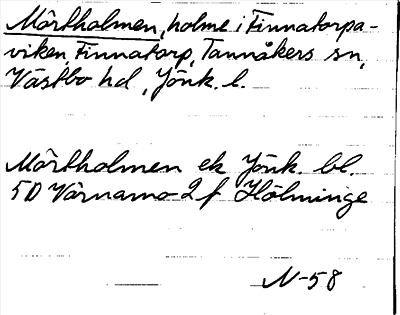 Mörtholmen, holme i Finnatorpa-
viken, Finnatorp, Tannåkers sn,
Västbo hd, Jönk. l.
Mörtholmen ek Jönk. bl.
5D Värnamo 2 f Hölminge
N-58